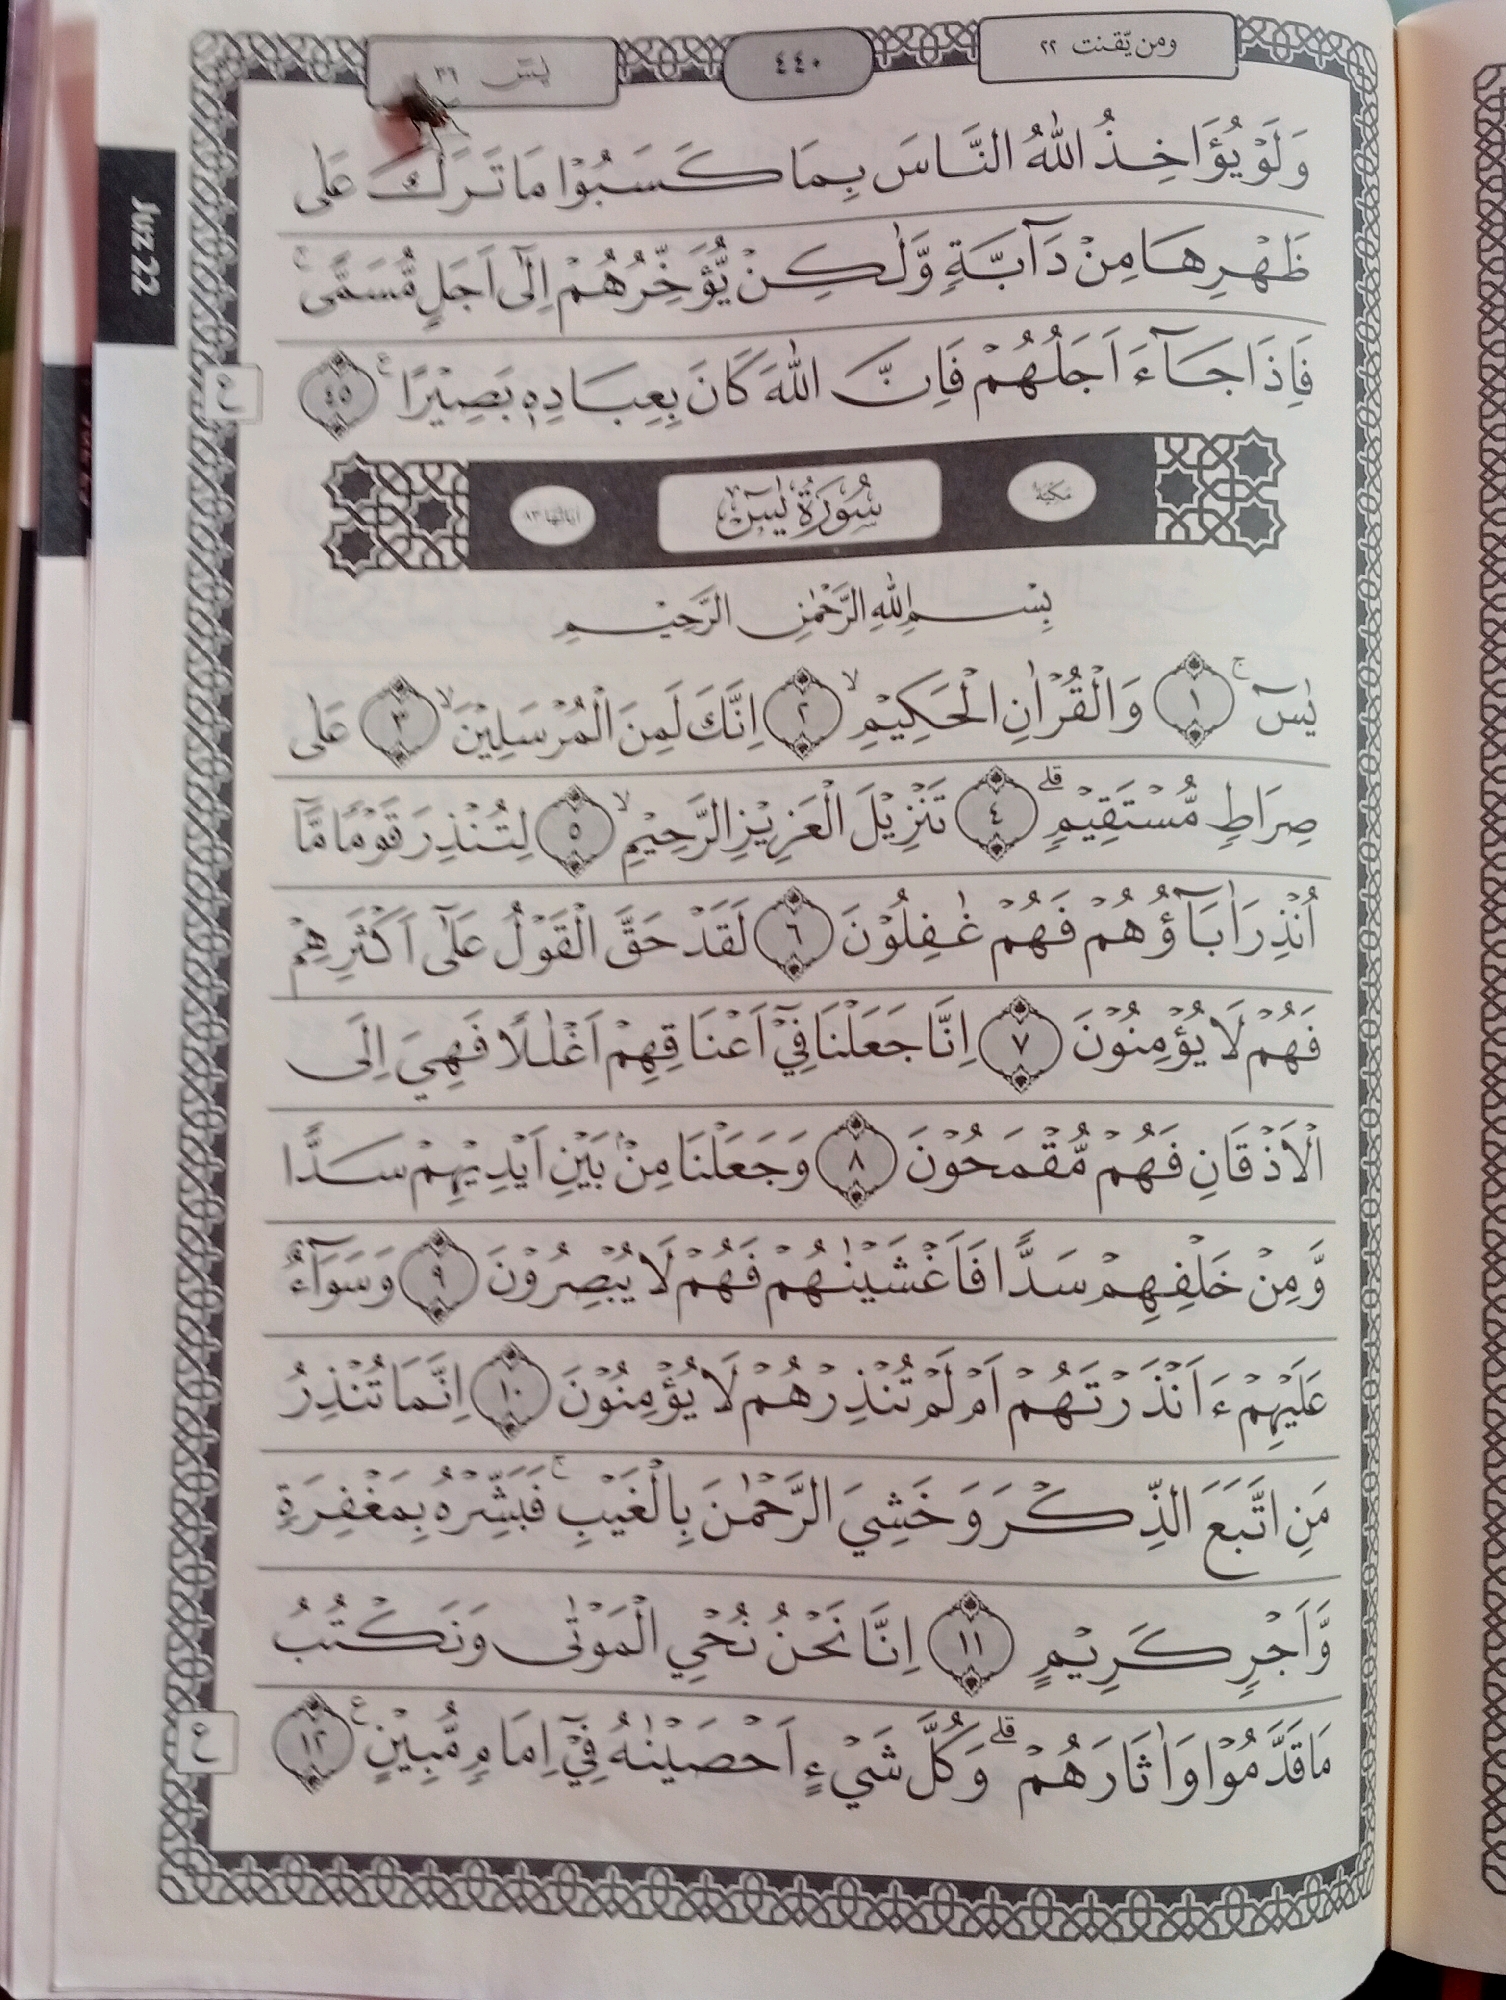 ومن يّقنت ٢٢
٤٤٠
يٰسۤ ٣٦
Juz 22
وَلَوْ يُؤَاخِذُ اللّٰهُ النَّاسَ بِمَا كَسَبُوْا مَا تَرَكَ عَلٰى
ظَهْرِهَا مِنْ دَاۤبَّةٍ وَّلٰكِنْ يُّؤَخِّرُهُمْ اِلٰٓى اَجَلٍ مُّسَمًّىۚ
فَاِذَا جَاۤءَ اَجَلُهُمْ فَاِنَّ اللّٰهَ كَانَ بِعِبَادِهٖ بَصِيْرًا ࣖ ٤٥
ع
مَكِّيَّة
سُوْرَةُ يٰسۤ
اٰيَاتُهَا ٨٣
بِسْمِ اللّٰهِ الرَّحْمٰنِ الرَّحِيْمِ
يٰسۤ ۚ ١ وَالْقُرْاٰنِ الْحَكِيْمِۙ ٢ اِنَّكَ لَمِنَ الْمُرْسَلِيْنَۙ ٣ عَلٰى
صِرَاطٍ مُّسْتَقِيْمٍۗ ٤ تَنْزِيْلَ الْعَزِيْزِ الرَّحِيْمِۙ ٥ لِتُنْذِرَ قَوْمًا مَّآ
اُنْذِرَ اٰبَاۤؤُهُمْ فَهُمْ غٰفِلُوْنَ ٦ لَقَدْ حَقَّ الْقَوْلُ عَلٰٓى اَكْثَرِهِمْ
فَهُمْ لَا يُؤْمِنُوْنَ ٧ اِنَّا جَعَلْنَا فِيْٓ اَعْنَاقِهِمْ اَغْلٰلًا فَهِيَ اِلَى
الْاَذْقَانِ فَهُمْ مُّقْمَحُوْنَ ٨ وَجَعَلْنَا مِنْۢ بَيْنِ اَيْدِيْهِمْ سَدًّا
وَّمِنْ خَلْفِهِمْ سَدًّا فَاَغْشَيْنٰهُمْ فَهُمْ لَا يُبْصِرُوْنَ ٩ وَسَوَاۤءٌ
عَلَيْهِمْ ءَاَنْذَرْتَهُمْ اَمْ لَمْ تُنْذِرْهُمْ لَا يُؤْمِنُوْنَ ١٠ اِنَّمَا تُنْذِرُ
مَنِ اتَّبَعَ الذِّكْرَ وَخَشِيَ الرَّحْمٰنَ بِالْغَيْبِۚ فَبَشِّرْهُ بِمَغْفِرَةٍ
وَّاَجْرٍ كَرِيْمٍ ١١ اِنَّا نَحْنُ نُحْيِ الْمَوْتٰى وَنَكْتُبُ
مَا قَدَّمُوْا وَاٰثَارَهُمْۗ وَكُلَّ شَيْءٍ اَحْصَيْنٰهُ فِيْٓ اِمَامٍ مُّبِيْنٍ ࣖ ١٢
ع